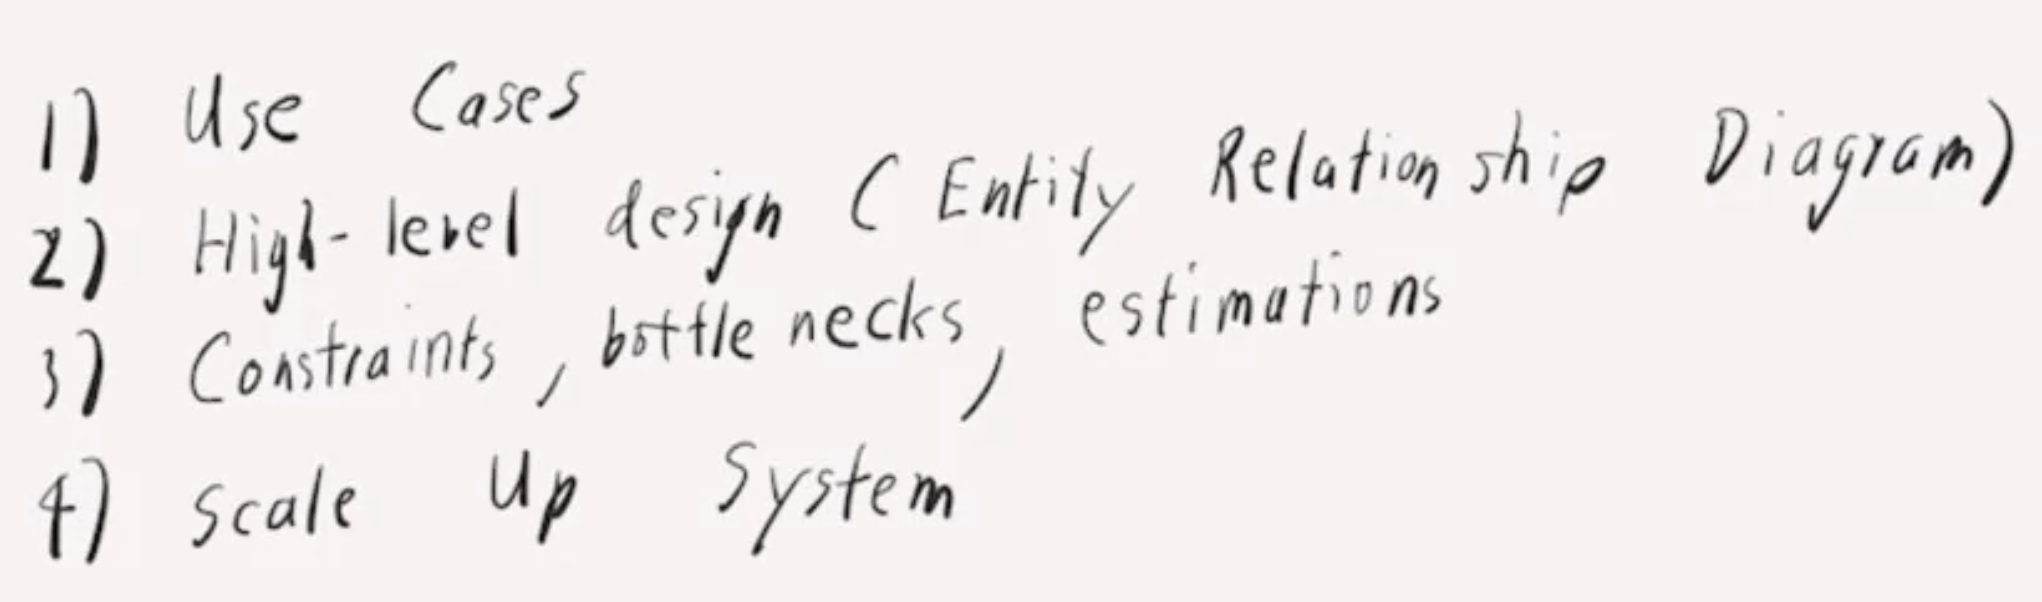 1) Use Cases
2) High-level design (Entity Relationship Diagram)
3) Constraints, bottle necks, estimations
4) Scale Up System